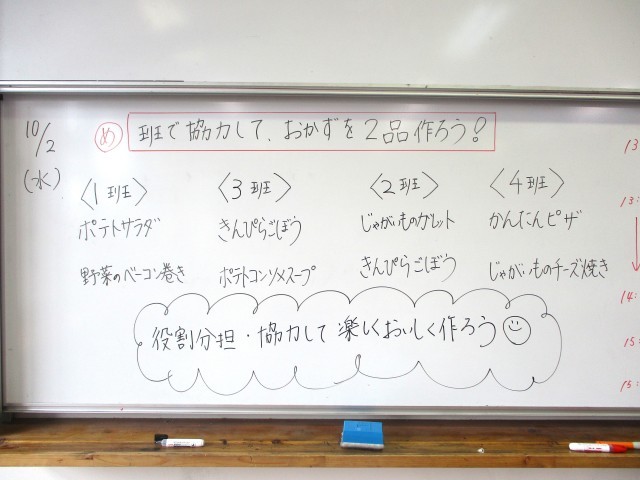 10/2
(水)
め 班で協力して、おかずを2品作ろう!
〈1班〉
ポテトサラダ
野菜のベーコン巻き
〈3班〉
きんぴらごぼう
ポテトコンソメスープ
〈2班〉
じゃがいものガレット
きんぴらごぼう
〈4班〉
かんたんピザ
じゃがいものチーズ焼き
役割分担・協力して楽しくおいしく作ろう
13
13:
14:
15:
15: